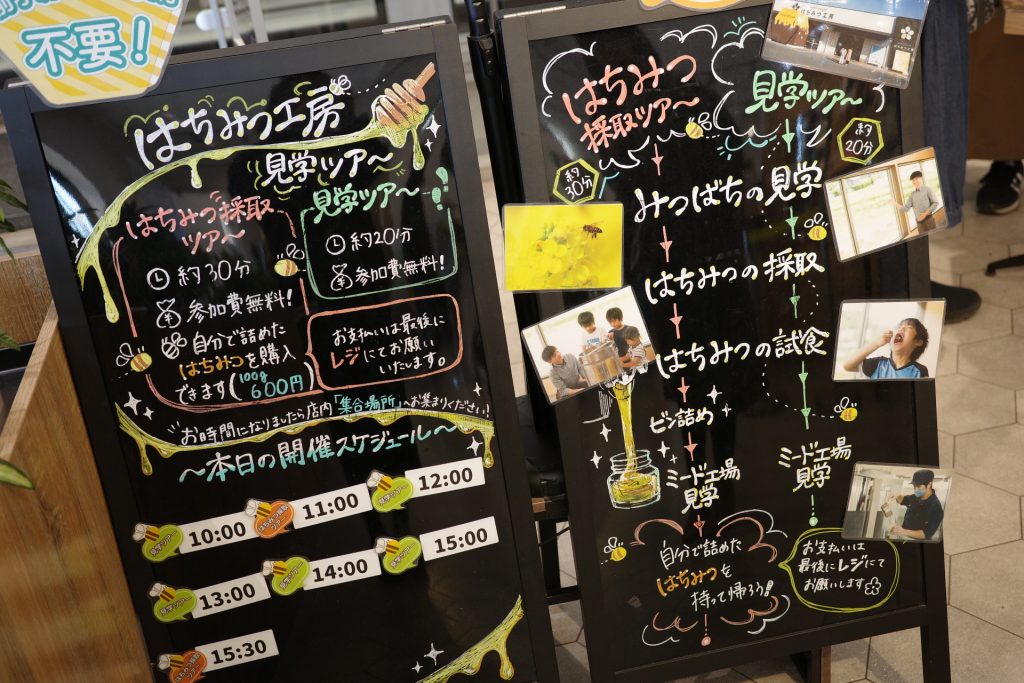 不要！
はちみつ工房
見学ツアー
はちみつ採取
ツアー
約30分
参加費無料！
自分で詰めた
はちみつを購入
できます（100g 600円）
見学ツアー
約20分
参加費無料！
お支払いは最後に
レジにてお願い
いたします。
お時間になりましたら店内「集合場所」へお集まりください！
～本日の開催スケジュール～
見学ツアー 10:00
はちみつ採取ツアー 11:00
見学ツアー 12:00
見学ツアー 13:00
見学ツアー 14:00
見学ツアー 15:00
はちみつ採取ツアー 15:30
はちみつ工房
はちみつ
採取ツアー
見学ツアー
約30分
約20分
みつばちの見学
はちみつの採取
はちみつの試食
ビン詰め
ミード工場
見学
ミード工場
見学
自分で詰めた
はちみつを
持って帰ろう！
お支払いは
最後にレジにて
お願いします